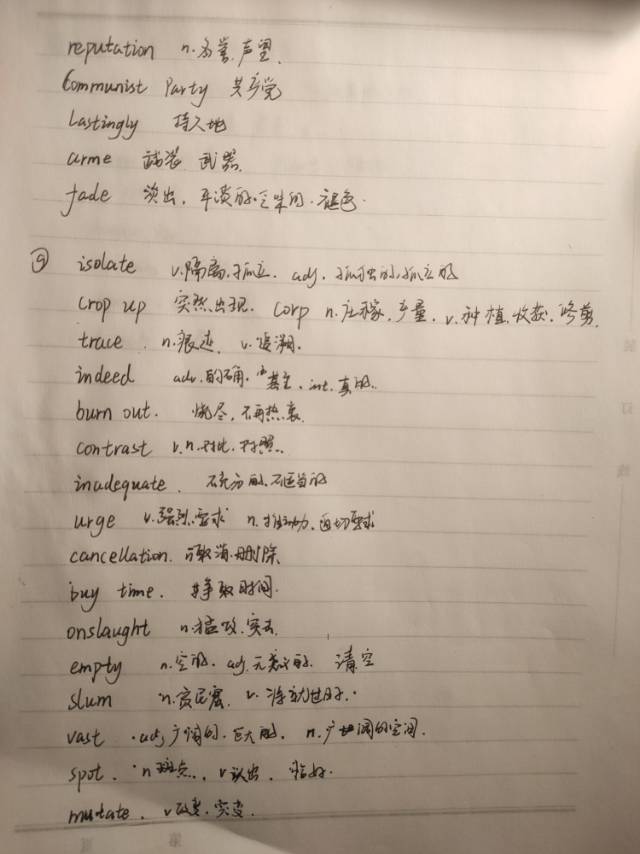 reputation n.名誉.声望.
Communist Party 共产党
Lastingly 持久地
arme 武装 武器
fade 淡出, 平淡的.乏味的.褪色.
⑤ isolate v.隔离.孤立. adj.孤独的,孤立的
crop up 突然出现. corp n.庄稼.产量. v.种植.收获.修剪.
trace. n.痕迹. v.追溯.
indeed adv.的确. 甚至. int.真的.
burn out. 烧尽, 不再热衷.
contrast v.n.对比.对照.
inadequate. 不充分的.不适当的
urge v.强烈要求 n.推动力.迫切要求
cancellation. 取消.删除
buy time. 争取时间.
onslaught n.猛攻.突击.
empty n.空的. adj.无意义的. 清空
slum n.贫民窟. v.
vast .adj广阔的.巨大的. n.广阔的空间.
spot. n斑点., v认出. 恰好.
mutate. v改变.突变.